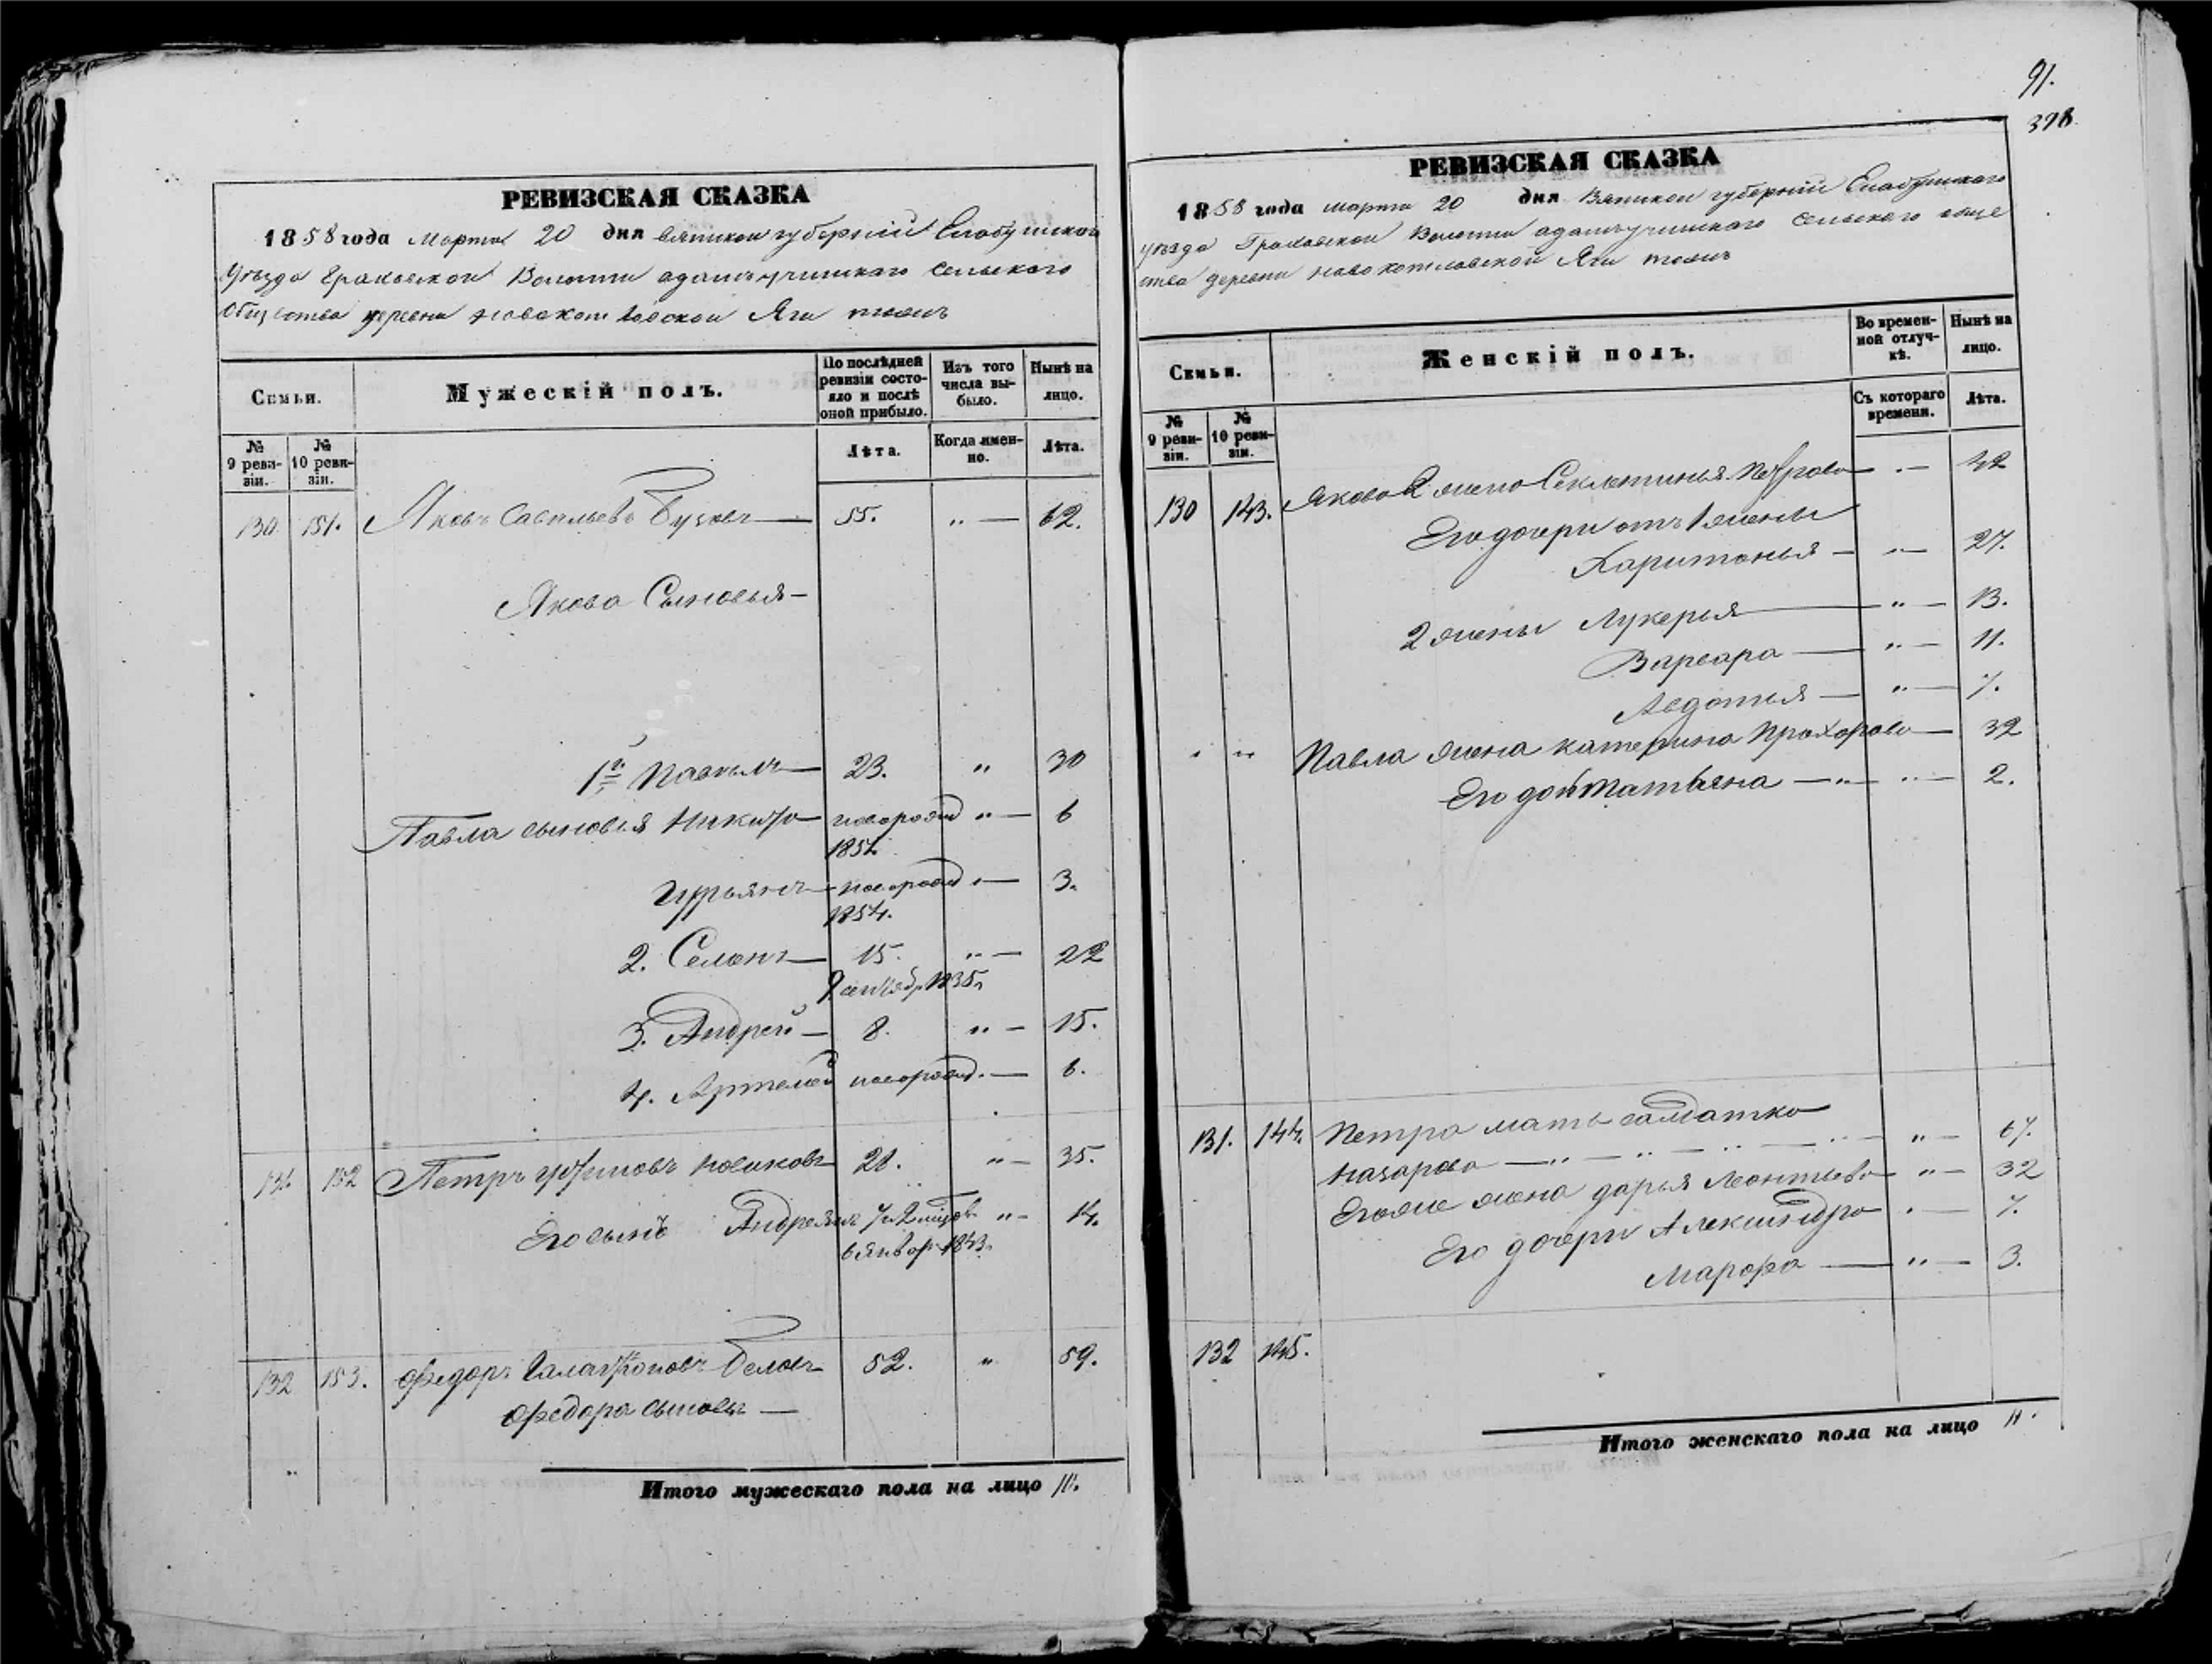 91.
398
РЕВИЗСКАЯ СКАЗКА
1858 года Марта 20 дня Вятской губернии Елабужской
Уезда Граховской Волости сельского
Общества деревни
Семьи.
Мужескій полъ.
По послѣдней ревизіи состояло и послѣ оной прибыло.
Изъ того числа выбыло.
Нынѣ на лицо.
№ 9 ревизіи.
№ 10 ревизіи.
Лѣта.
Когда именно.
Лѣта.
130 151. Яковъ Савельевъ 55. " — 62.
Якова Сыновья —
1й Павелъ — 23. " 30
Павла сыновья Никита — новорожд " — 6
185
Гурьянъ — новорожд " — 3.
1854.
2. Семенъ — 15. " — 22
1835
3. Андрей — 8. " — 15.
4. Артемей новорожд. — 6.
131 152 Петръ Новиковъ 28. " — 35.
Его сынъ " — 14.
6 январ 1843.
132 153. Федоръ Беловъ 52. " 59.
Федора сыновья —
Итого мужескаго пола на лицо
РЕВИЗСКАЯ СКАЗКА
1858 года марта 20 дня Вятской губернии Елабужского
уезда Граховской Волости сельского обще
ства деревни
Семьи.
Женскій полъ.
Во временной отлучкѣ.
Нынѣ на лицо.
№ 9 ревизіи.
№ 10 ревизіи.
Съ котораго времени.
Лѣта.
130 143. Якова 2 жена Секлетинья Петрова — " — 42
Его дочери отъ 1 жены
Харитонья — " — 27.
2 жены Лукерья — " — 13.
Варвара — " — 11.
Авдотья — " — 7.
" " Павла жена катерина Прохорова — 32
Его дочь Татьяна — " — " — 2.
131. 144. Петра мать салдатка
Назарова — " — " — " — 67.
Егоже жена дарья Леонтьева " — 32
Его дочери Александра " — 7.
Марфа — " — 3.
132 145.
Итого женскаго пола на лицо 11.